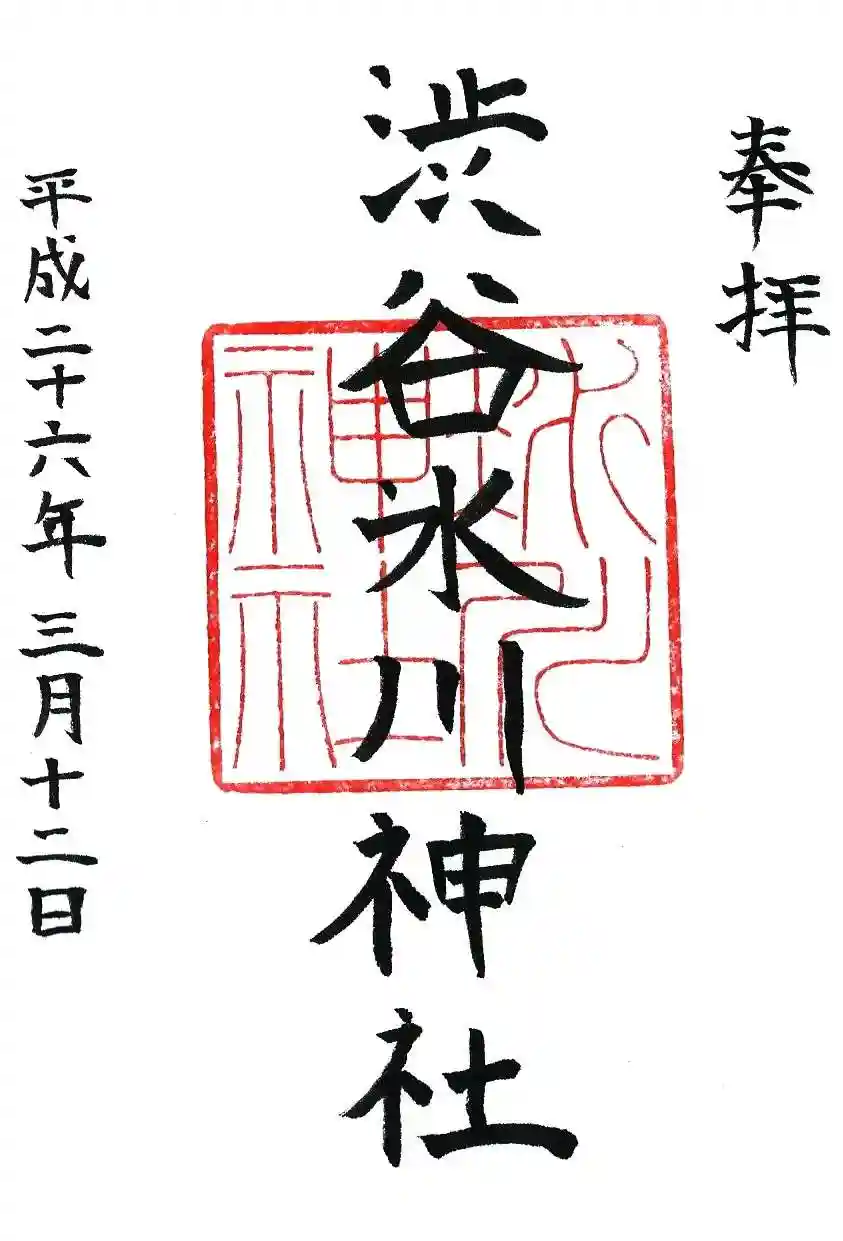 奉拝
渋谷氷川神社
氷川神社
平成二十六年三月十二日